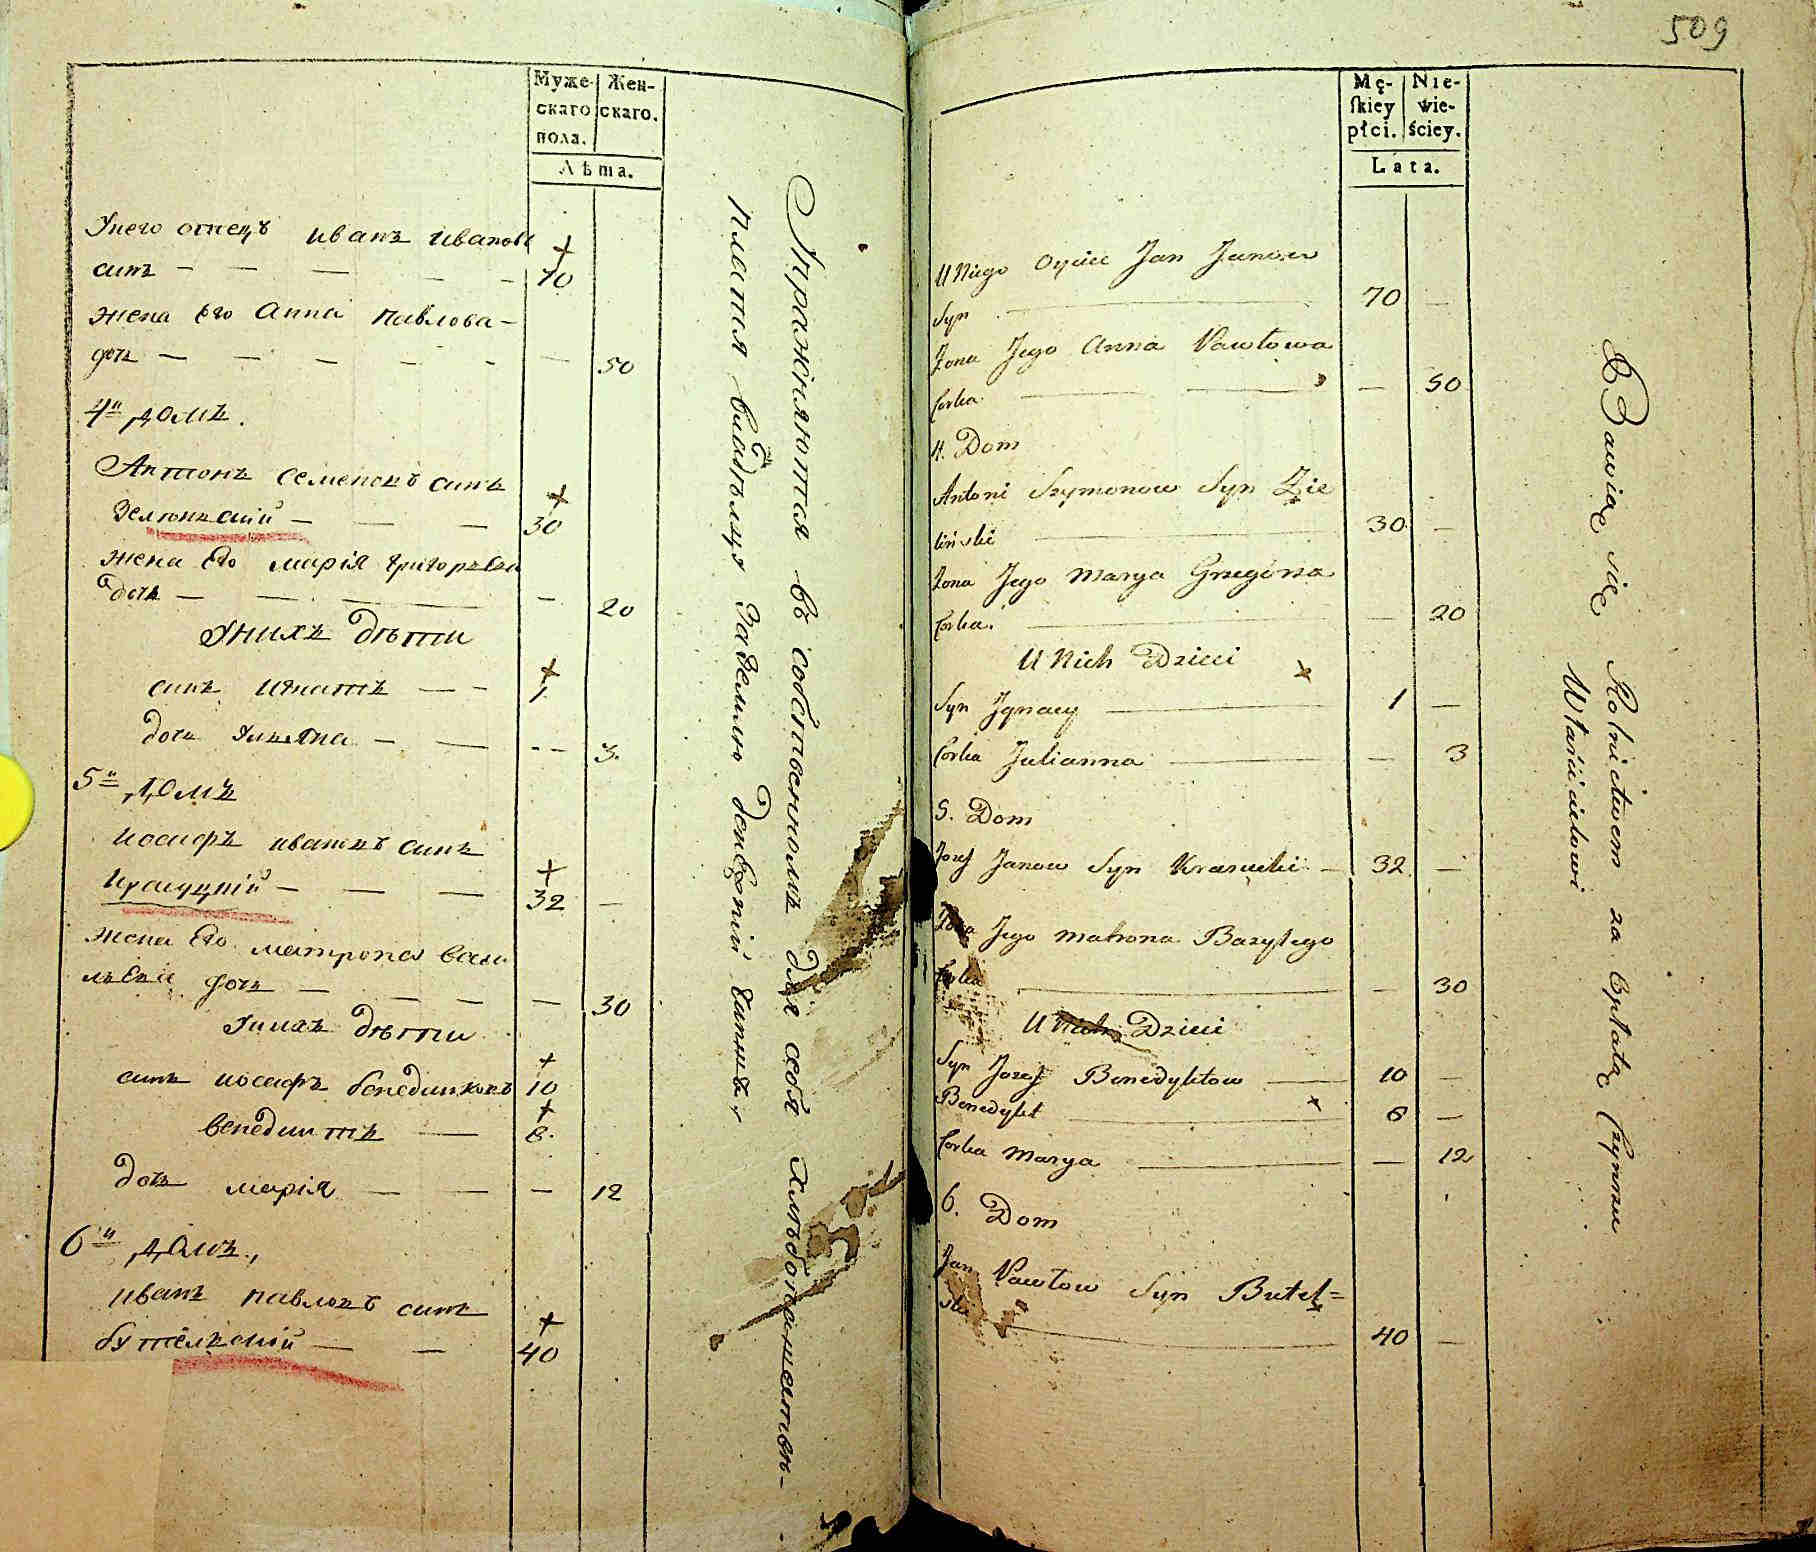 509
Муже-
скаго
пола.
Жен-
скаго.
Лѣта.
Унего отецъ иванъ ивановъ
синъ — — — — — 70
жена Его Анна павлова —
дочь — — — — — — 50
4й домъ.
Антонъ Семеновъ синъ
Зелѣнъский — — — 30
жена Его марія григорьева
дочь — — — — 20
Унихъ дѣти
синъ игнатъ — — 1
дочь Улияна — — -- 3.
5й домъ
иосифъ ивановъ синъ
красуцкий — — — 32 —
жена Его матрона васи
льева дочь — — — — 30
Унихъ дѣти
синъ иосифъ бенедиктовъ 10
венедиктъ — 8.
дочь марія — — — 12
6й домъ.
иванъ павловъ синъ
бутелъский — — 40
Упражняются въ собственномъ для себя хлѣбопашествѣ-
платя владѣлцу за землю денежний чиншъ
Mę-
ſkiey
płci.
Nie-
wie-
ściey.
Lata.
U Niego Oyciec Jan Janow
Syn 70 —
Żona Jego Anna Pawłowa
Corka — 50
4. Dom
Antoni Szymonow Syn Zie
liński 30 —
Żona Jego Marya Grzegórza
Corka. — 20
U Nich Dzieci
Syn Jgnacy 1 —
Corka Julianna — 3
5. Dom
Jozef Janow Syn Krasucki — 32 —
Żona Jego Matrona Bazylego
Corka — 30
U Nich Dzieci
Syn Jozef Benedyktow 10 —
Benedykt 8 —
Corka Marya — 12
6. Dom
Jan Pawłow Syn Butel=
ski 40 —
Bawią się Rolnictwem za Opłatą Czynszu
Właścicielowi